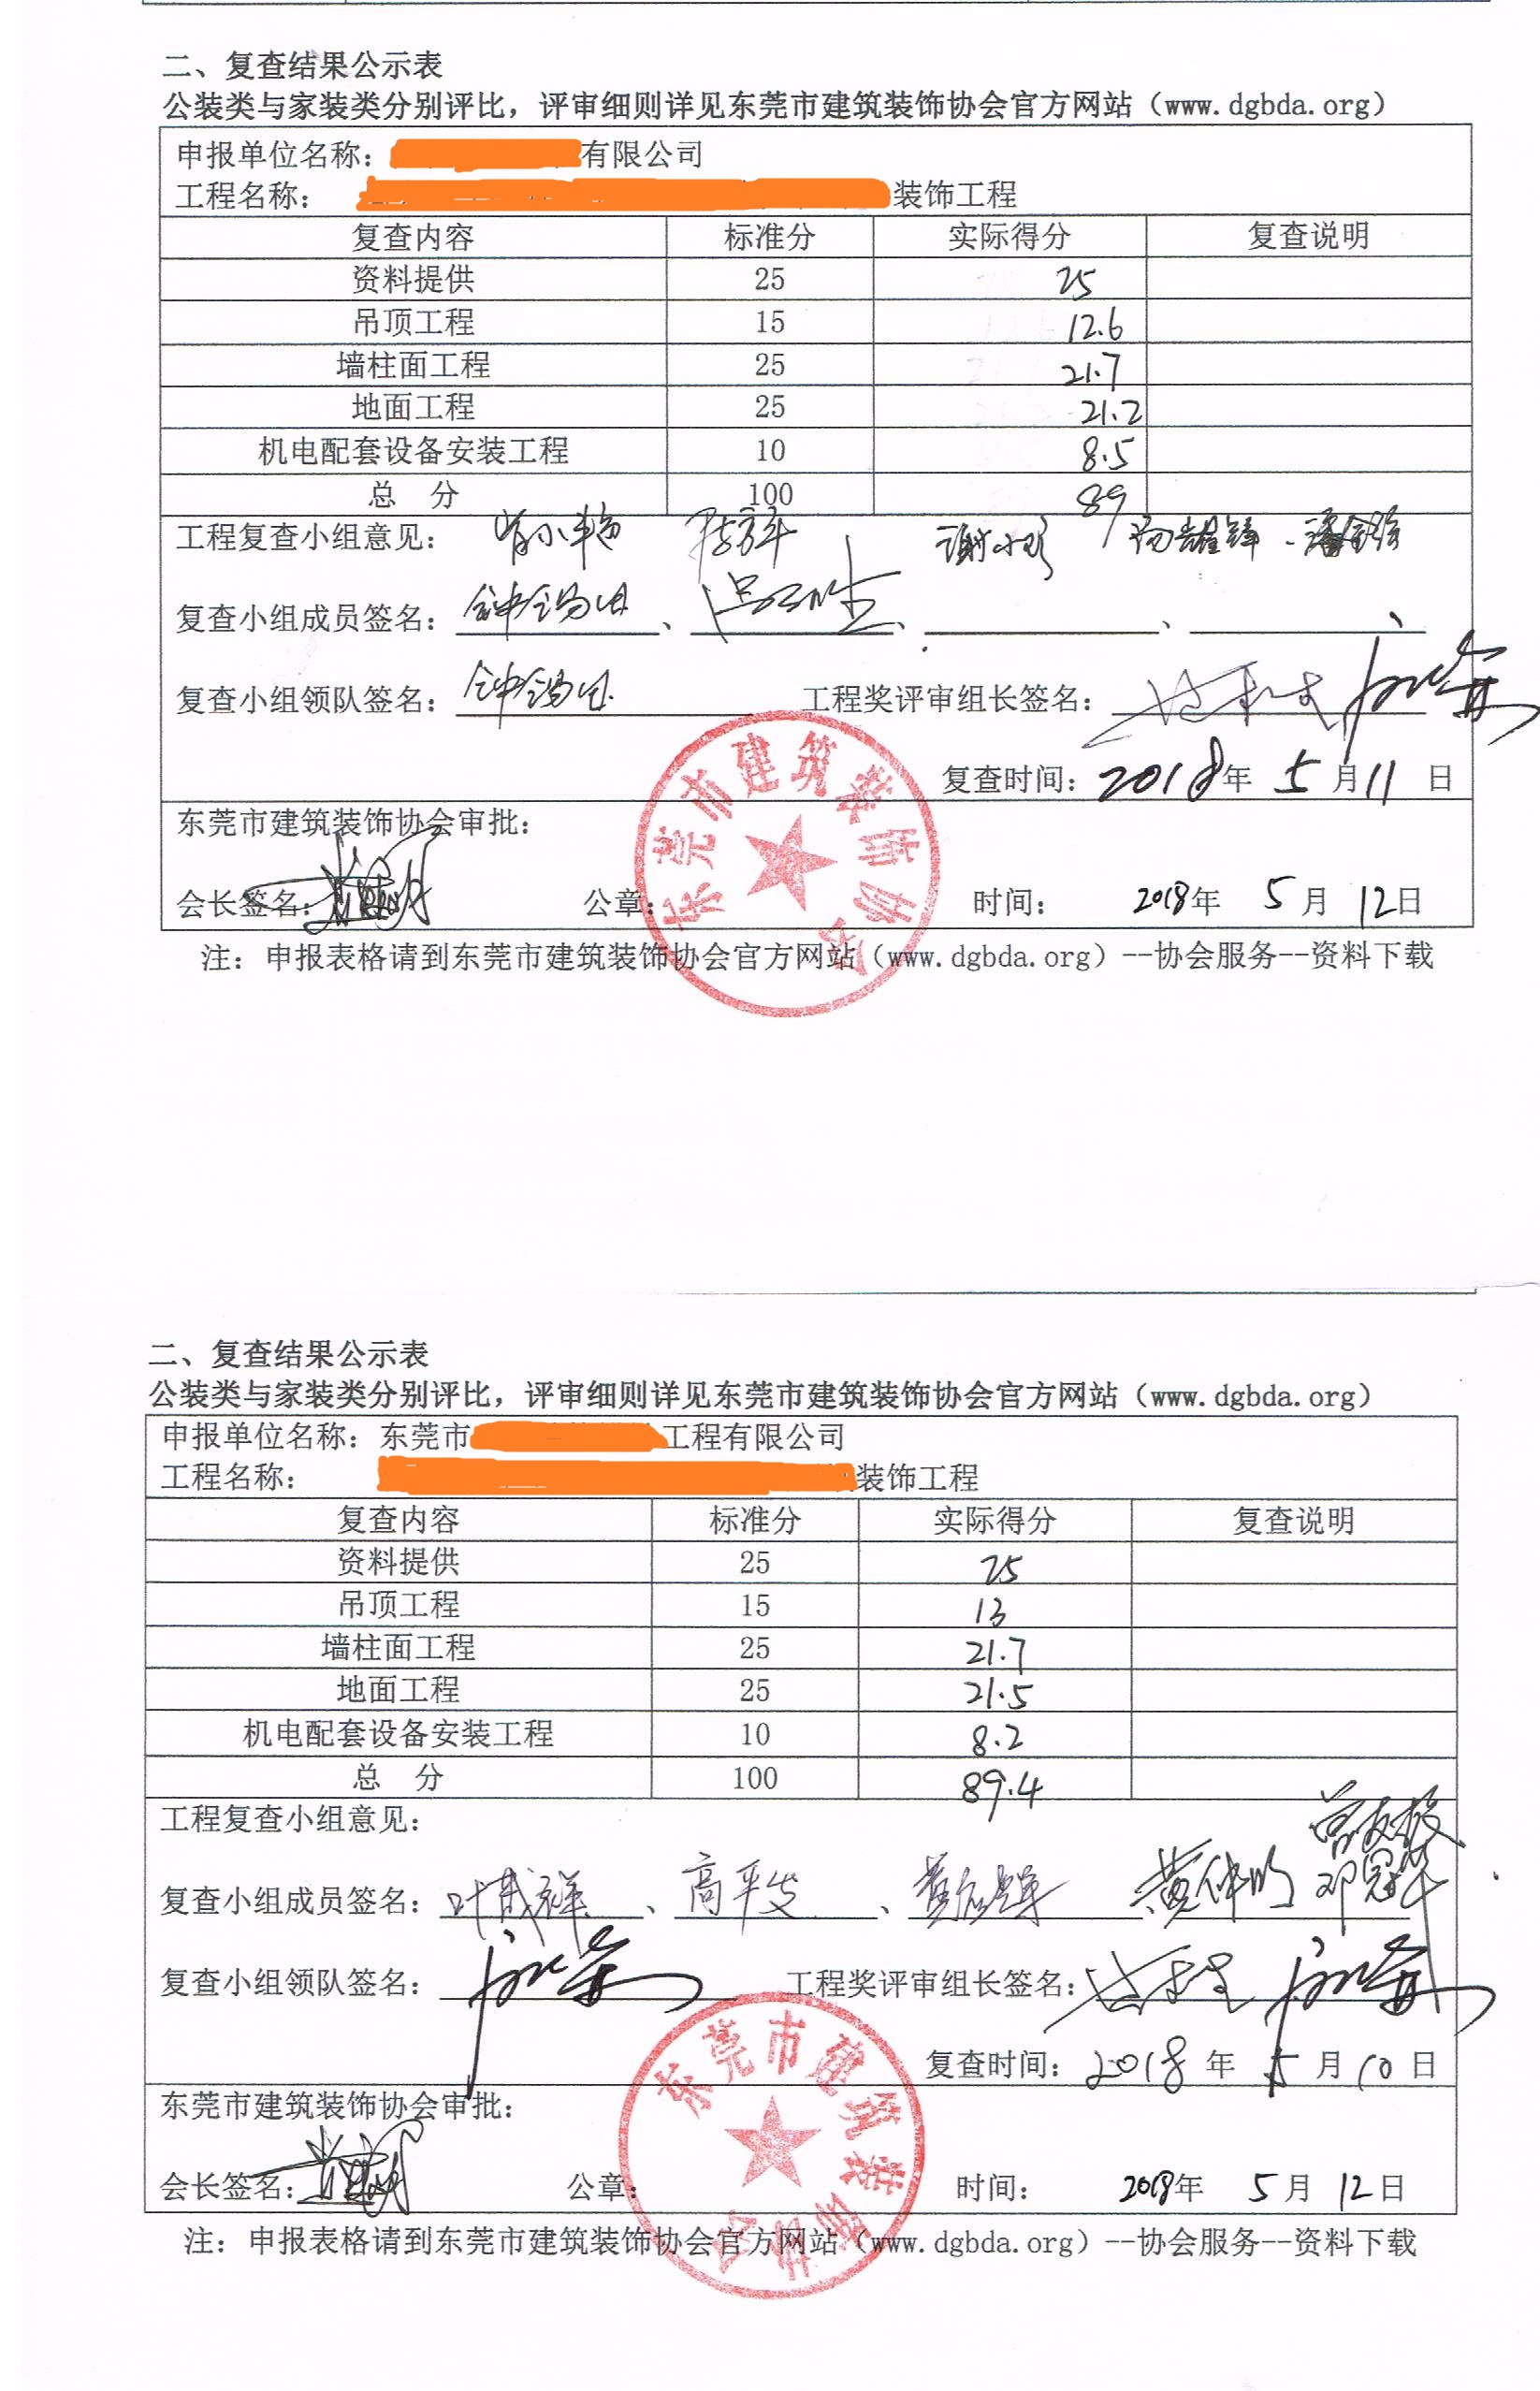 二、复查结果公示表
公装类与家装类分别评比，评审细则详见东莞市建筑装饰协会官方网站（www.dgbda.org）
申报单位名称： 有限公司
工程名称： 装饰工程
复查内容 标准分 实际得分 复查说明
资料提供 25 25
吊顶工程 15 12.6
墙柱面工程 25 21.7
地面工程 25 21.2
机电配套设备安装工程 10 8.5
总 分 100 89
工程复查小组意见：
复查小组成员签名： 、 、 、 、
复查小组领队签名： 工程奖评审组长签名：
复查时间：2018年 5 月 11 日
东莞市建筑装饰协会审批：
会长签名： 公章： 时间： 2018年 5 月 12日
东莞市建筑装饰协会
注：申报表格请到东莞市建筑装饰协会官方网站（www.dgbda.org）--协会服务--资料下载
二、复查结果公示表
公装类与家装类分别评比，评审细则详见东莞市建筑装饰协会官方网站（www.dgbda.org）
申报单位名称：东莞市 工程有限公司
工程名称： 装饰工程
复查内容 标准分 实际得分 复查说明
资料提供 25 25
吊顶工程 15 13
墙柱面工程 25 21.7
地面工程 25 21.5
机电配套设备安装工程 10 8.2
总 分 100 89.4
工程复查小组意见：
复查小组成员签名：叶成祥、高平安、 黄仲明
复查小组领队签名： 工程奖评审组长签名：
复查时间：2018 年 5 月 10 日
东莞市建筑装饰协会审批：
会长签名： 公章： 时间： 2018年 5 月 12日
东莞市建筑装饰协会
注：申报表格请到东莞市建筑装饰协会官方网站（www.dgbda.org）--协会服务--资料下载